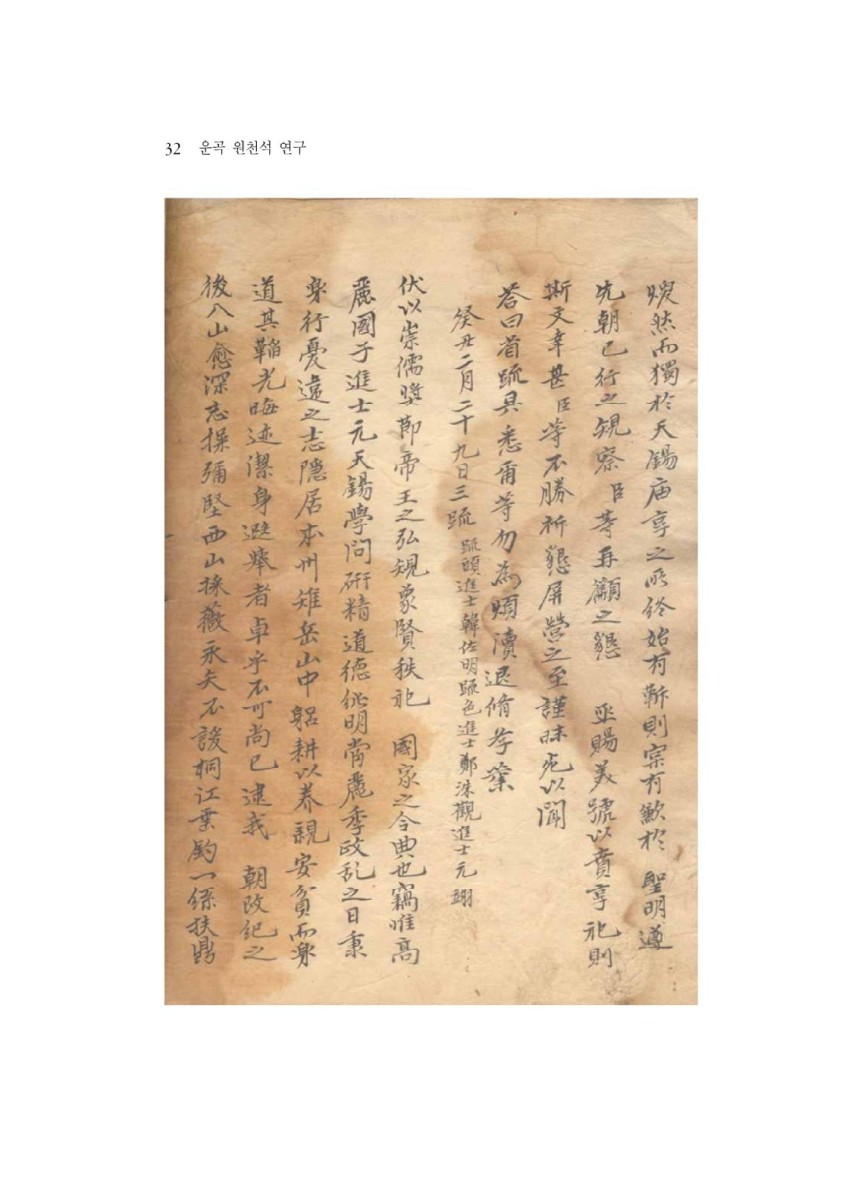 32 운곡 원천석 연구
煥然而獨於天錫庙享之所終始有靳則寔有歉於 聖明遵
先朝已行之規察臣等再籲之懇 亟賜美號以賁享祀則
斯文幸甚臣等不勝祈懇屏營之至謹昧死以聞
答曰省疏具悉爾等勿爲煩瀆退脩孝業
癸丑二月二十九日三疏 疏頭進士韓佐明疏色進士鄭洙觀進士元翊
伏以崇儒奬節帝王之弘規象賢秩祀 國家之令典也竊唯高
麗國子進士元天錫學問硏精道德純明當麗季政乱之日秉
樂行憂違之志隱居本州雉岳山中躬耕以养親安貧而樂
道其韜光晦迹潔身避擧者卓乎不可尚已逮我 朝改紀之
後入山愈深志操彌堅西山採薇永矢不諼桐江垂釣一絲扶鼎